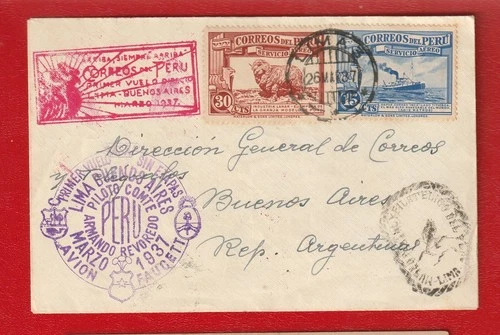 ARRIBA, SIEMPRE ARRIBA
CORREOS DEL PERU
PRIMER VUELO DIRECTO
LIMA-BUENOS AIRES
MARZO 1937.
CORREOS DEL PERU
SERVICIO AEREO
30
CTS
CORREOS DEL PERU
SERVICIO AEREO
15
CTS
LIMA
Dirección General de Correos
y Telégrafos
Buenos Aires
Rep. Argentina
PRIMER VUELO SIN ETAPAS
LIMA BUENOS AIRES
PILOTO COMTE O
ARMANDO REVOREDO
PERU
MARZO 1937
AVION FAUCETT
LIMA